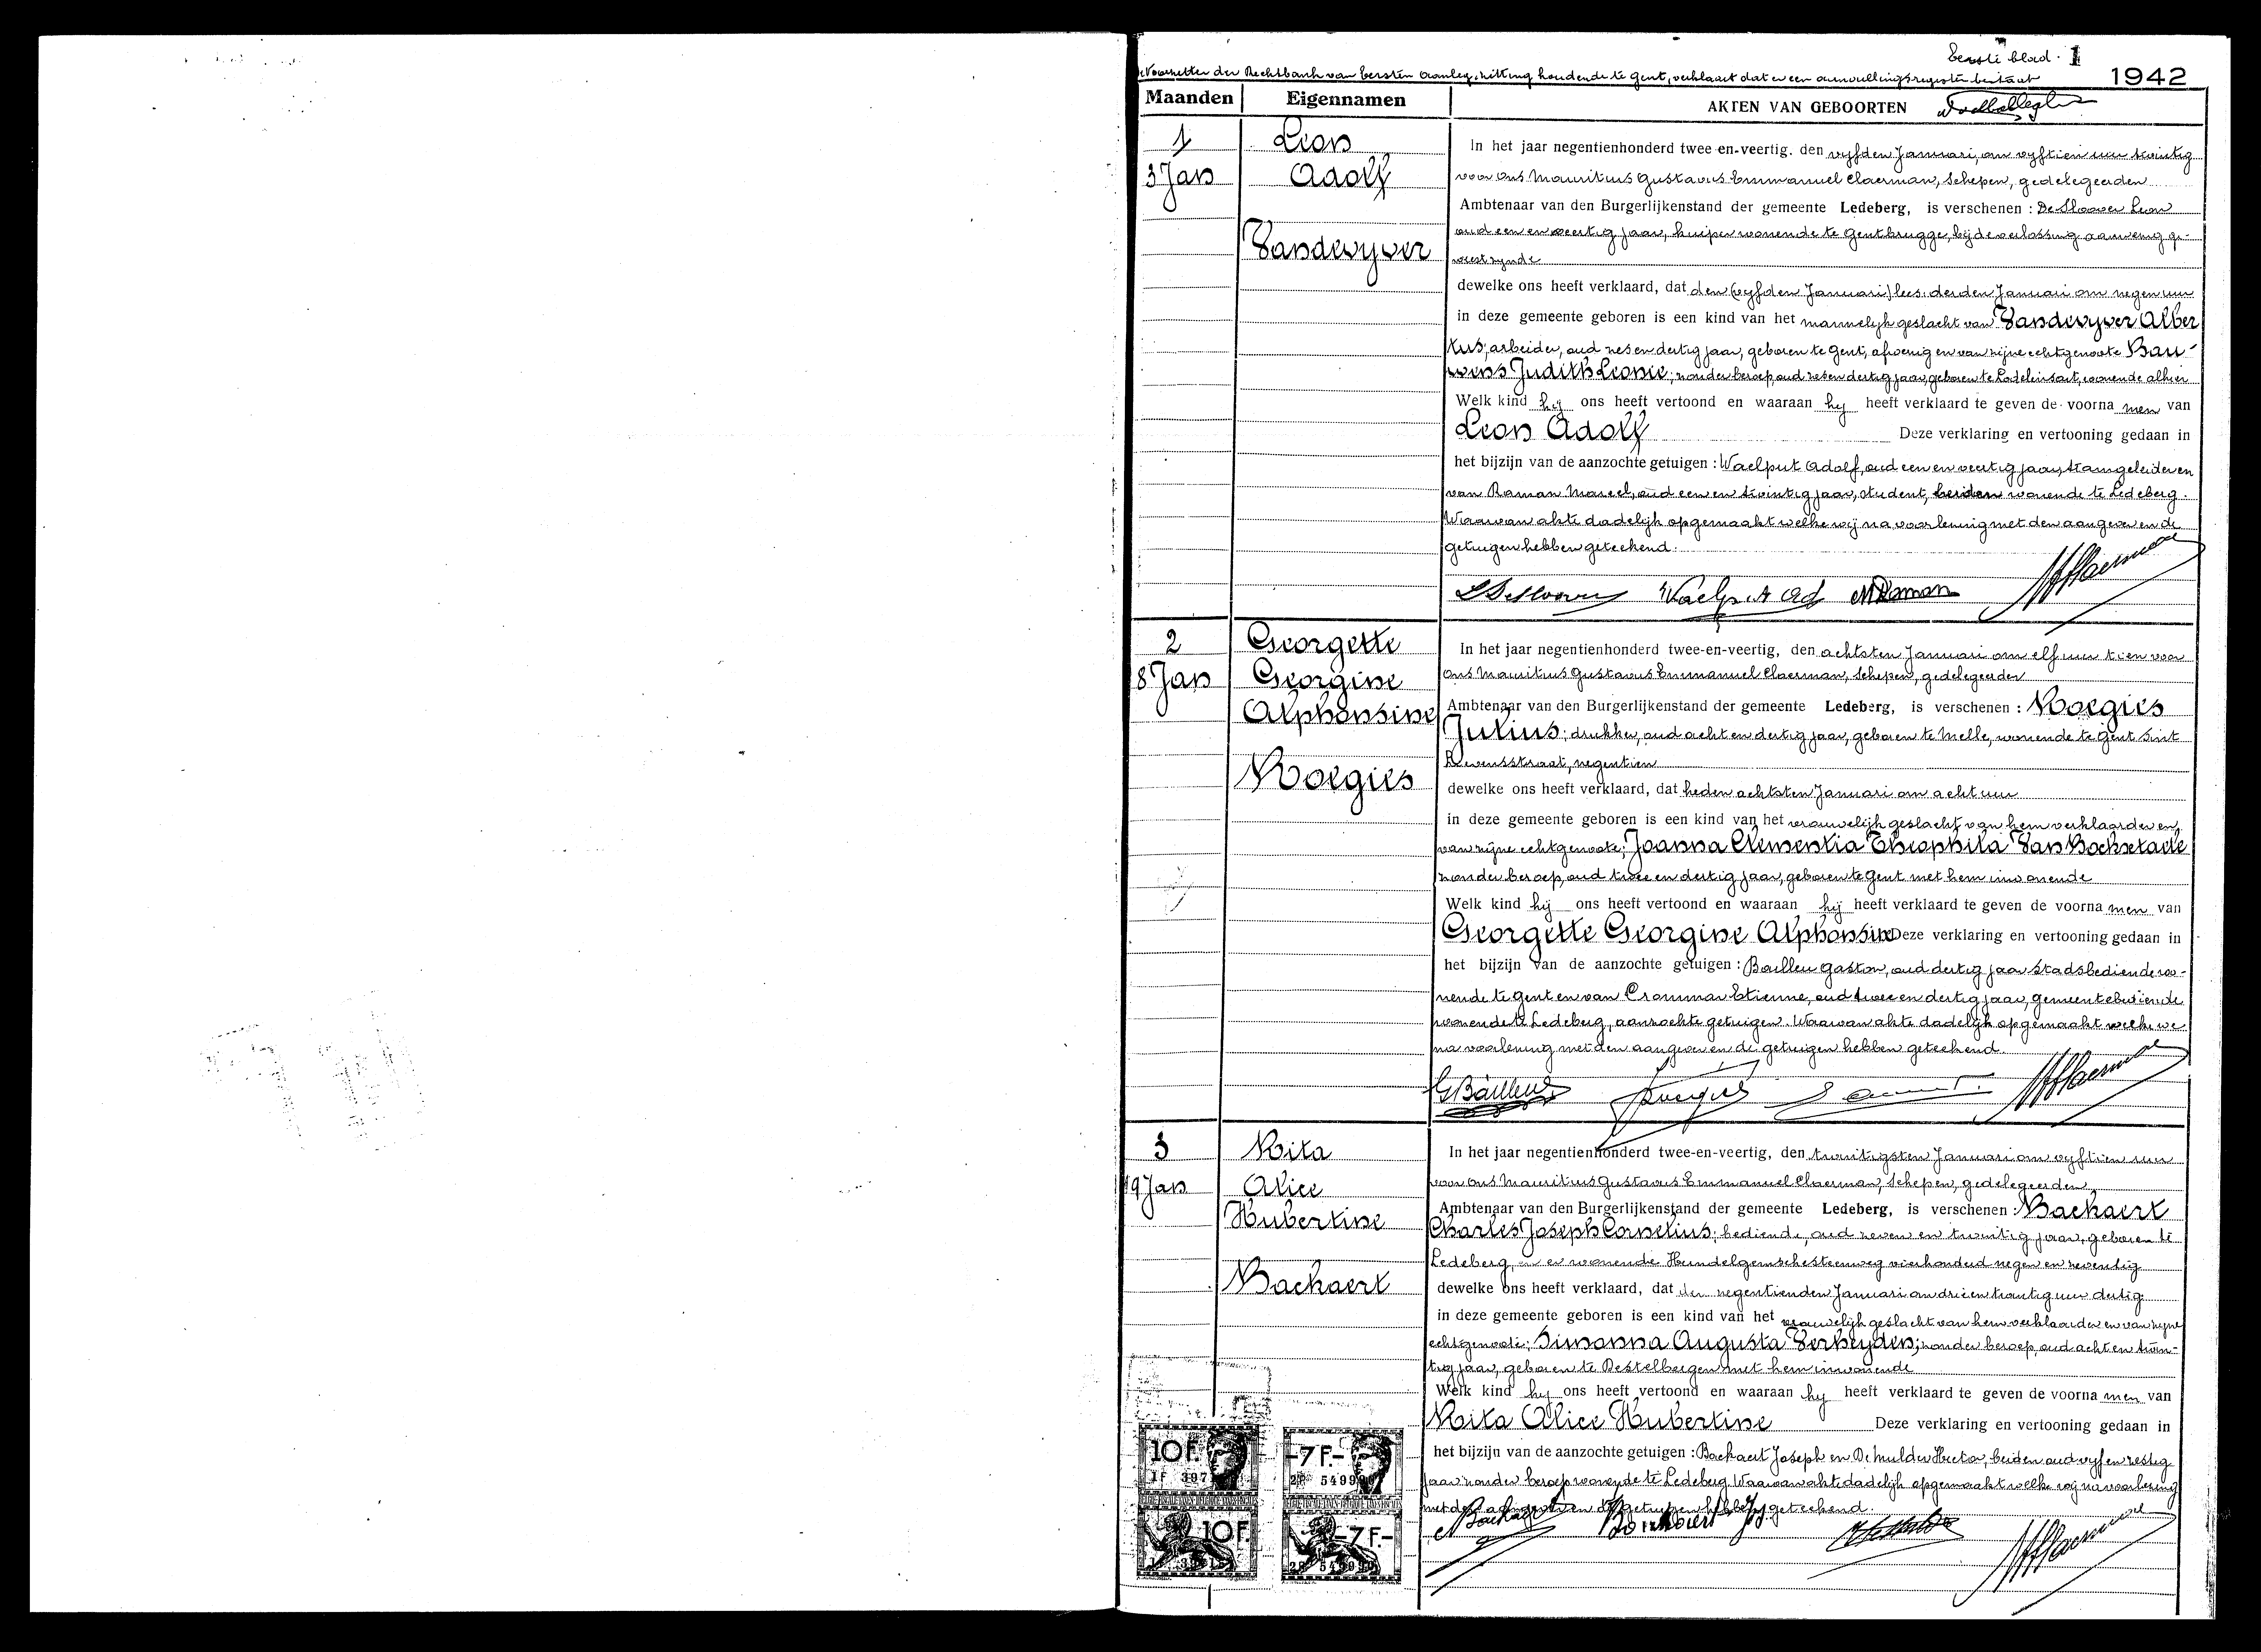 Eerste blad. 1
Voorzitter der Rechtbank van Eersten Aanleg, zitting houdende te Gent, verklaart dat er een aanvullingsregister bestaat
1942
Maanden Eigennamen AKTEN VAN GEBOORTEN
1
3 Jan
Leon
Adolf
Vandevyver
In het jaar negentienhonderd twee-en-veertig, den vyfden Januari, om vyftien uur twintig
voor ons Mauritius Gustavus Emmanuel Claerman, schepen, gedelegeerden
Ambtenaar van den Burgerlijkenstand der gemeente Ledeberg, is verschenen : De Sloover Leon
oud een en veertig jaar, kuiper wonende te Gentbrugge, bij de verlossing aanwezig ge-
weest zynde
dewelke ons heeft verklaard, dat den (vyfden Januari) lees: derden Januari om negen uur
in deze gemeente geboren is een kind van het mannelijk geslacht van Vandevyver Alber
tus; arbeider, oud zes en dertig jaar, geboren te Gent, afwezig en van zijne echtgenoote Bau-
wens Judith Leonie; zonder beroep, oud zes en dertig jaar, geboren te Lodelinsart, wonende alhier
Welk kind hij ons heeft vertoond en waaraan hij heeft verklaard te geven de voorna men van
Leon Adolf Deze verklaring en vertooning gedaan in
het bijzijn van de aanzochte getuigen : Waelput Adolf, oud een en veertig jaar, tramgeleider en
van Raman Marcel, oud een en twintig jaar, student, beiden wonende te Ledeberg.
Waarvan akte dadelijk opgemaakt welke wij na voorlezing met den aangever en de
getuigen hebben geteekend.
L De Sloover Waelput Ad M Raman M Claerman
2
8 Jan
Georgette
Georgine
Alphonsine
Roegies
In het jaar negentienhonderd twee-en-veertig, den achtsten Januari om elf uur tien voor
ons Mauritius Gustavus Emmanuel Claerman, schepen, gedelegeerden
Ambtenaar van den Burgerlijkenstand der gemeente Ledeberg, is verschenen : Roegies
Julius; drukker, oud acht en dertig jaar, geboren te Melle, wonende te Gent Sint
Lievensstraat, negentien
dewelke ons heeft verklaard, dat heden achtsten Januari om acht uur
in deze gemeente geboren is een kind van het vrouwelijk geslacht van hem verklaarder en,
van zijne echtgenoote; Joanna Clementia Theophila Van Bockstaele
zonder beroep, oud twee en dertig jaar, geboren te Gent met hem inwonende
Welk kind hij ons heeft vertoond en waaraan hij heeft verklaard te geven de voorna men van
Georgette Georgine Alphonsine Deze verklaring en vertooning gedaan in
het bijzijn van de aanzochte getuigen : Baillieu Gaston, oud dertig jaar stadsbediende wo-
nende te Gent en van Crommar Etienne, oud twee en dertig jaar, gemeentebediende
wonende te Ledeberg, aanzochte getuigen. Waarvan akte dadelijk opgemaakt welke we
na voorlezing met den aangever en de getuigen hebben geteekend.
G Baillieu JRoegies M Claerman
3
19 Jan
Rita
Alice
Hubertine
Backaert
In het jaar negentienhonderd twee-en-veertig, den twintigsten Januari om vyftien uur
voor ons Mauritius Gustavus Emmanuel Claerman, schepen, gedelegeerden
Ambtenaar van den Burgerlijkenstand der gemeente Ledeberg, is verschenen : Backaert
Charles Joseph Cornelius; bediende, oud zeven en twintig jaar, geboren te
Ledeberg en er wonende Hundelgemschesteenweg vierhonderd negen en zeventig
dewelke ons heeft verklaard, dat den negentienden Januari om drie en twintig uur dertig
in deze gemeente geboren is een kind van het vrouwelijk geslacht van hem verklaarder en van zijne
echtgenoote; Simonna Augusta Verheyden; zonder beroep, oud acht en twin-
tig jaar, geboren te Destelbergen met hem inwonende
Welk kind hij ons heeft vertoond en waaraan hij heeft verklaard te geven de voorna men van
Rita Alice Hubertine Deze verklaring en vertooning gedaan in
het bijzijn van de aanzochte getuigen : Backaert Joseph en De Mulder Hector, beiden oud vyf en zestig
jaar zonder beroep wonende te Ledeberg. Waarvan akte dadelijk opgemaakt welke wij na voorlezing
met den aangever en de getuigen hebben geteekend.
Backaert Backaert Jos M Claerman
10 F. -7 F.-
10 F. -7 F.-